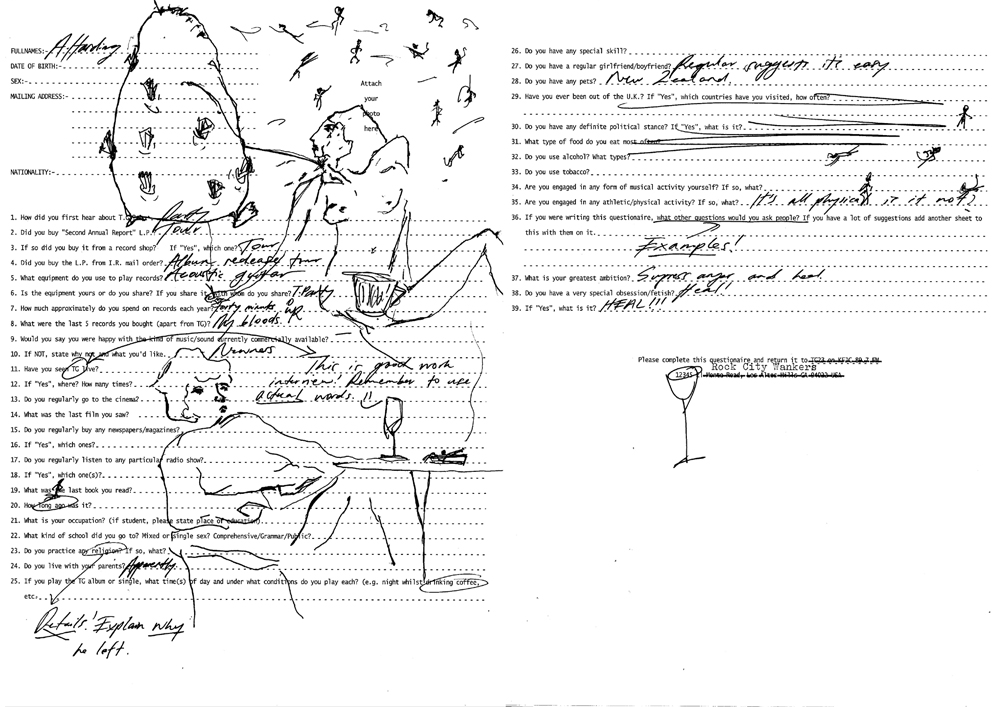 FULLNAMES:- A. Harding
DATE OF BIRTH:-
SEX:-
MAILING ADDRESS:-
Attach
your
photo
here
NATIONALITY:-
1. How did you first hear about T.G.? Party
2. Did you buy "Second Annual Report" L.P. Tour
3. If so did you buy it from a record shop? If "Yes", which one? Tour
4. Did you buy the L.P. from I.R. mail order? Album redease tour
5. What equipment do you use to play records? Acoustic guitar
6. Is the equipment yours or do you share? If you share it with whom do you share? T. Party
7. How much approximately do you spend on records each year? forty minutes
8. What were the last 5 records you bought (apart from TG)? My bloods. UP
9. Would you say you were happy with the kind of music/sound currently commercially available?
10. If NOT, state why not and what you'd like.
11. Have you seen TG live?
This is good work
interview. Remember to use
actual words!!
12. If "Yes", where? How many times?
13. Do you regularly go to the cinema?
14. What was the last film you saw?
15. Do you regularly buy any newspapers/magazines?
16. If "Yes", which ones?
17. Do you regularly listen to any particular radio show?
18. If "Yes", which one(s)?
19. What was the last book you read?
20. How long ago was it?
21. What is your occupation? (if student, please state place of education)
22. What kind of school did you go to? Mixed or single sex? Comprehensive/Grammar/Public?
23. Do you practice any religion? If so, what?
24. Do you live with your parents? Apparently
25. If you play the TG album or single, what time(s) of day and under what conditions do you play each? (e.g. night whilst drinking coffee,
etc.
Details! Explain why
he left.
26. Do you have any special skill?
27. Do you have a regular girlfriend/boyfriend? Regular suggests it's easy
28. Do you have any pets? New Zealand.
29. Have you ever been out of the U.K.? If "Yes", which countries have you visited, how often?
30. Do you have any definite political stance? If "Yes", what is it?
31. What type of food do you eat most often?
32. Do you use alcohol? What types?
33. Do you use tobacco?
34. Are you engaged in any form of musical activity yourself? If so, what?
35. Are you engaged in any athletic/physical activity? If so, what? It's all physical is it not?
36. If you were writing this questionnaire, what other questions would you ask people? If you have a lot of suggestions add another sheet to
this with them on it.
Examples!
37. What is your greatest ambition? Supress anger and heal.
38. Do you have a very special obsession/fetish? Heal!
39. If "Yes", what is it? HEAL!!!
Please complete this questionaire and return it to
Rock City Wankers
12345 Monte Road, Los Altos Hills CA 94022 USA